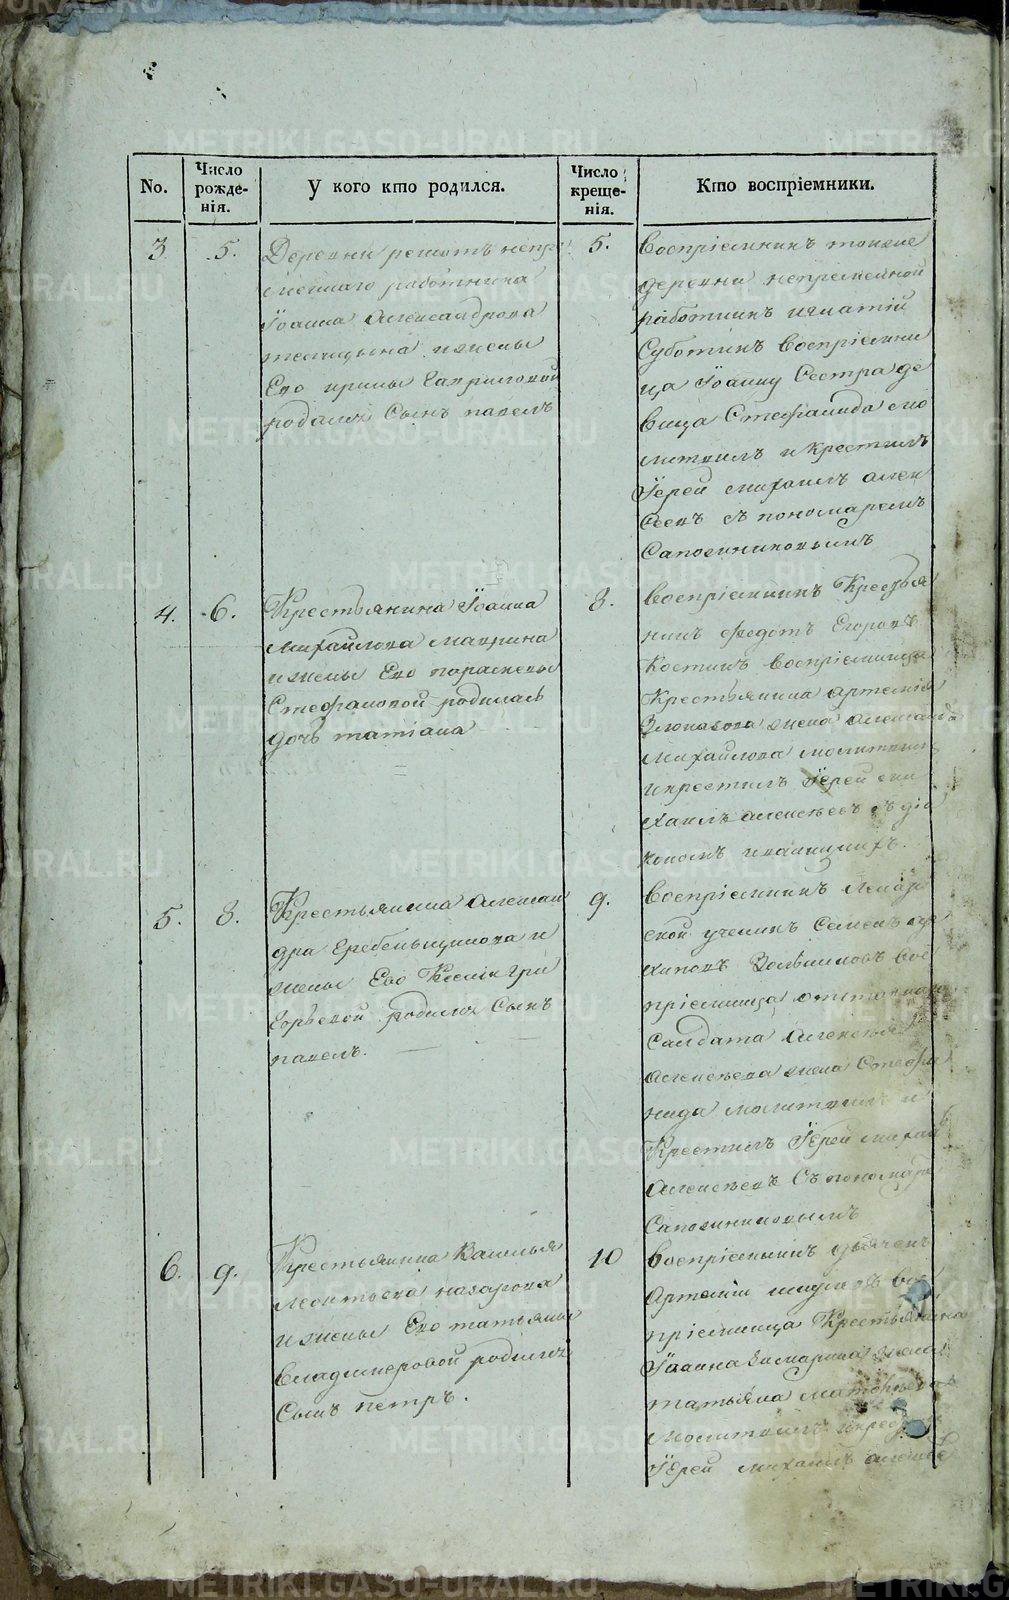 No.
Число рожде-
нія.
У кого кто родился.
Число креще-
нія.
Кто воспріемники.
3.
5.
Деревни решотъ непре
меннаго работника
Іоанна Александрова
и жены
Его ирины Гавриловой
родился Сынъ павелъ
5.
воспріемникъ тоиже
деревни непременной
работникъ игнатій
Суботинъ воспріемни
ца Іоанну Сестра де
вица Стефанида мо
литвилъ и крестилъ
Іерей михаилъ алек
сеевъ съ пономаремъ
Сапожниковымъ
4.
6.
Крестьянина Іоанна
михайлова маурина
и жены Его параскевы
Стефановой родилась
дочь татіана
8.
воспріемникъ Крестья
нинъ федотъ Егоровъ
Костинъ воспріемница
Крестьянина артемія
жена александра
михайлова молитвилъ
и крестилъ Іерей ми
хаилъ алексѣевъ съ діа
кономъ
5.
8.
Крестьянина алексан
дра Гребеньщикова и
жены Его Ксеніи Гри
горьевой родился Сынъ
павелъ.
9.
воспріемникъ
ской ученикъ Семенъ ар
хиповъ вос
пріемница отставнаго
Салдата алексѣя
алексѣева жена Стефа
нида молитвилъ и
Крестилъ Іерей михаилъ
алексѣевъ Съ пономаремъ
Сапожниковымъ
6.
9.
Крестьянина Василья
леонтьева назарова
и жены Его татьяны
владимеровой родился
Сынъ петръ.
10
воспріемникъ дьячекъ
артемій вос
пріемница Крестьянина
Іоанна жена
татьяна матвѣева
молитвилъ и крестилъ
Іерей михаилъ алексѣевъ
METRIKI.GASO-URAL.RU